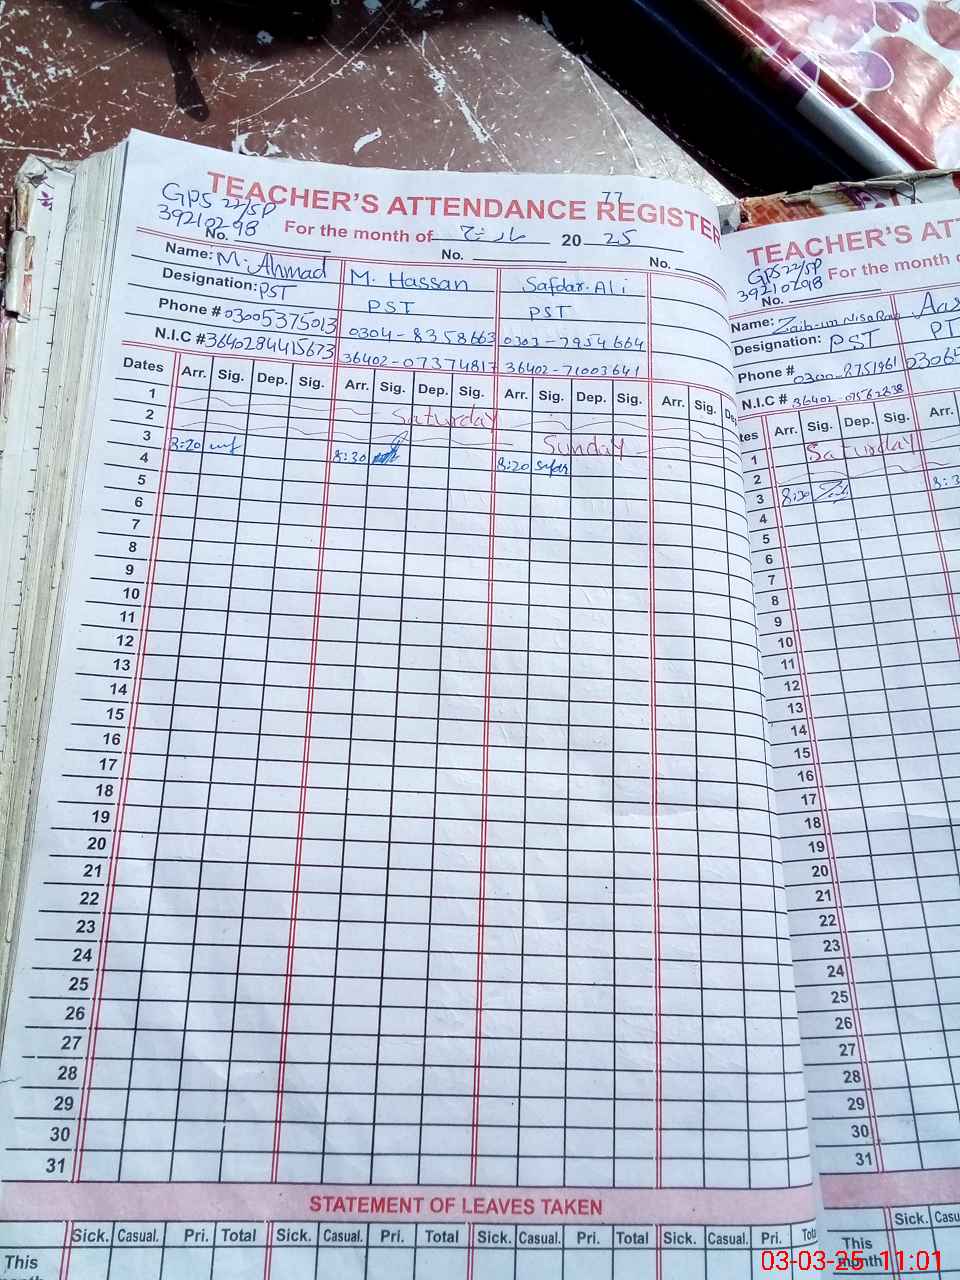 77
TEACHER'S ATTENDANCE REGISTER
GPS 22/SP
39210298
For the month of مارچ 2025
No. No. No.
Name: M. Ahmad M. Hassan Safdar Ali
Designation: PST PST PST
Phone # 03005375013 0304-8358663 0303-7954664
N.I.C # 3640284415673 36402-0737481 36402-71003641
Dates Arr. Sig. Dep. Sig. Arr. Sig. Dep. Sig. Arr. Sig. Dep. Sig. Arr. Sig. De
1
2 Saturday
3 Sunday
8:20 8:30 8:20
4
5
6
7
8
9
10
11
12
13
14
15
16
17
18
19
20
21
22
23
24
25
26
27
28
29
30
31
STATEMENT OF LEAVES TAKEN
Sick. Casual. Pri. Total Sick. Casual. Pri. Total Sick. Casual. Pri. Total Sick. Casual. Pri. Tot
This
TEACHER'S AT
GPS 22/SP
39210298
For the month o
No.
Name:
Designation: PST PT
Phone # 0300-8751961 0306
N.I.C #
tes Arr. Sig. Dep. Sig. Arr.
1 Saturday
2
3 8:30 8:3
4
5
6
7
8
9
10
11
12
13
14
15
16
17
18
19
20
21
22
23
24
25
26
27
28
29
30
31
Sick. Casu
This
03-03-25 11:01